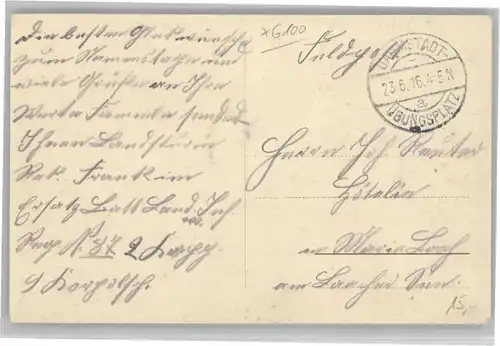 Die besten Glückwünsche
zum Namenstage und
viele Grüße an Ihre
Werte Familie sendet
Ihnen Landsturm
Rek. Frank im
Ersatz Batt Land. Inf.
Reg. N. 87 2 Kopp.
9 Korpolsch.
*G100
Feldpost
DARMSTADT-
23.6.16.4-5N
a
ÜBUNGSPLATZ
Herrn Joh. Reuter
Hôtelier
in Maria Laach
am Laacher See.
15,-